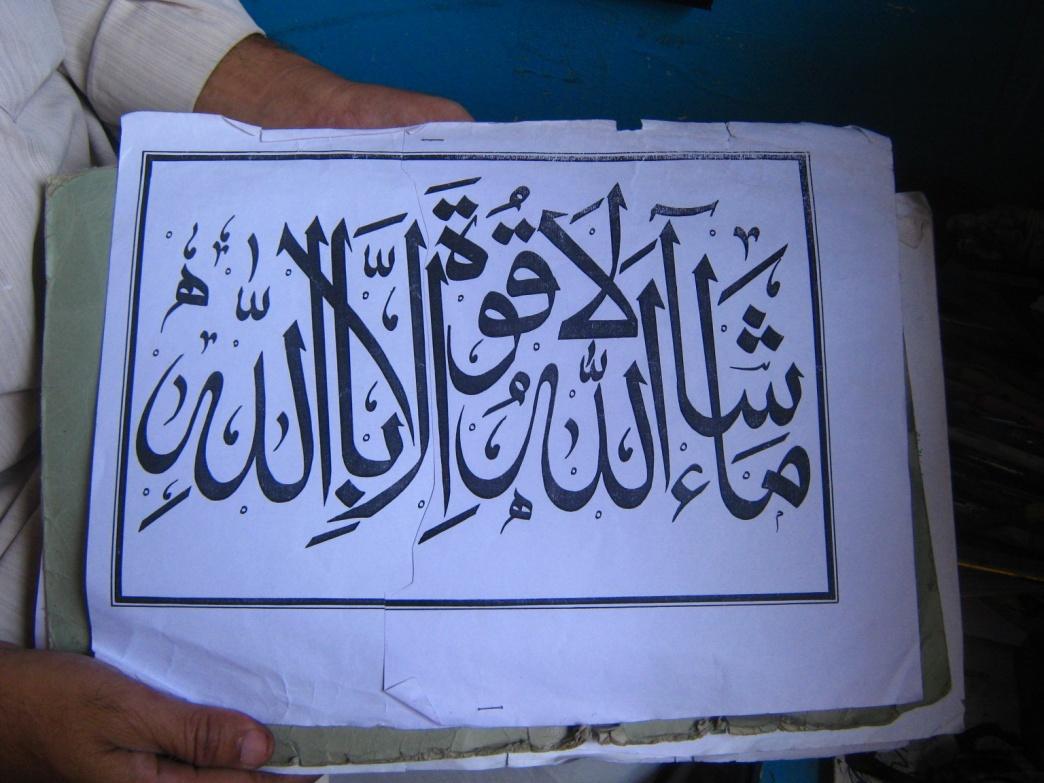 مَاشَآءَ اللّٰهُ لَا قُوَّةَ اِلَّا بِاللّٰهِ